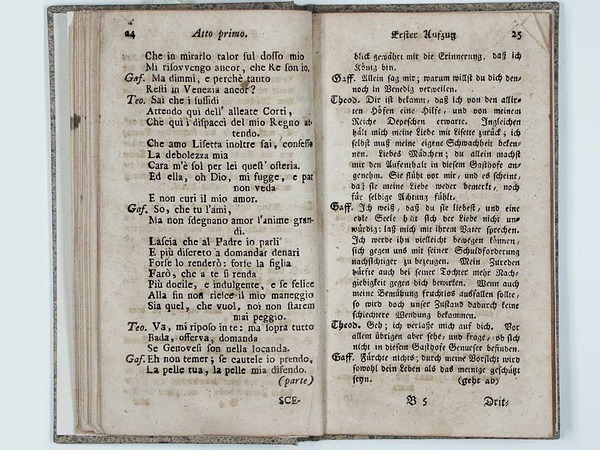 24 Atto primo.
Che in mirarlo talor sul dosso mio
Mi risovvengo ancor, che Re son io.
Gaf. Ma dimmi, e perchè tanto
Resti in Venezia ancor?
Teo. Sai che i sussidi
Attendo qui dell' alleate Corti,
Che qui i dispacci del mio Regno at-
tendo.
Che amo Lisetta inoltre sai, confesso
La debolezza mia
Cara m'è sol per lei quest' osteria.
Ed ella, oh Dio, mi fugge, e par
non veda
E non curi il mio amor.
Gaf. So, che tu l'ami,
Ma non sdegnano amor l'anime gran-
di.
Lascia che al Padre io parli
E più discreto a domandar denari
Forse lo renderò: forse la figlia
Farò, che a te si renda
Più docile, e indulgente, e se felice
Alla fin non riesce il mio maneggio
Sia quel, che vuol, noi non starem
mai peggio.
Teo. Va, mi riposo in te: ma sopra tutto
Bada, osserva, domanda
Se Genovesi son nella locanda.
Gaf. Eh non temer; se cautele io prendo,
La pelle tua, la pelle mia difendo.
(parte)
SCE-
Erster Aufzug 25
blick gewährt mir die Erinnerung, daß ich
König bin.
Gaff. Allein sag mir; warum willst du dich den-
noch in Venedig verweilen.
Theod. Dir ist bekannt, daß ich von den allir-
ten Höfen eine Hilfe, und von meinem
Reiche Depeschen erwarte. Ingleichen
hält mich meine Liebe mit Lisette zurück; ich
selbst muß meine eigene Schwachheit beken-
nen. Liebes Mädchen; du allein machst
mir den Aufenthalt in diesem Gasthofe an-
genehm. Sie flüht vor mir, und es scheint,
daß sie meine Liebe weder bemerkt, noch
für selbige Achtung fühlt.
Gaff. Ich weiß, daß du sie liebest, und eine
edle Seele hält sich der Liebe nicht un-
würdig: laß mich mit ihrem Vater sprechen.
Ich werde ihn vielleicht bewegen können,
sich gegen uns mit seiner Schuldforderung
nachsichtiger zu bezeugen. Mein Zureden
dürfte auch bei seiner Tochter mehr Nach-
giebigkeit gegen dich bewirken. Wenn auch
meine Bemühung fruchtlos ausfallen sollte,
so wird doch unser Zustand dadurch keine
schlechtere Wendung bekommen.
Theod. Geh; ich verlasse mich auf dich. Vor
allem übrigen aber sehe, und frage, ob sich
nicht in diesem Gasthofe Genueser befinden.
Gaff. Fürchte nichts; durch meine Vorsicht wird
sowohl dein Leben als das meinige geschützt
seyn. (geht ab)
B 5 Drit-